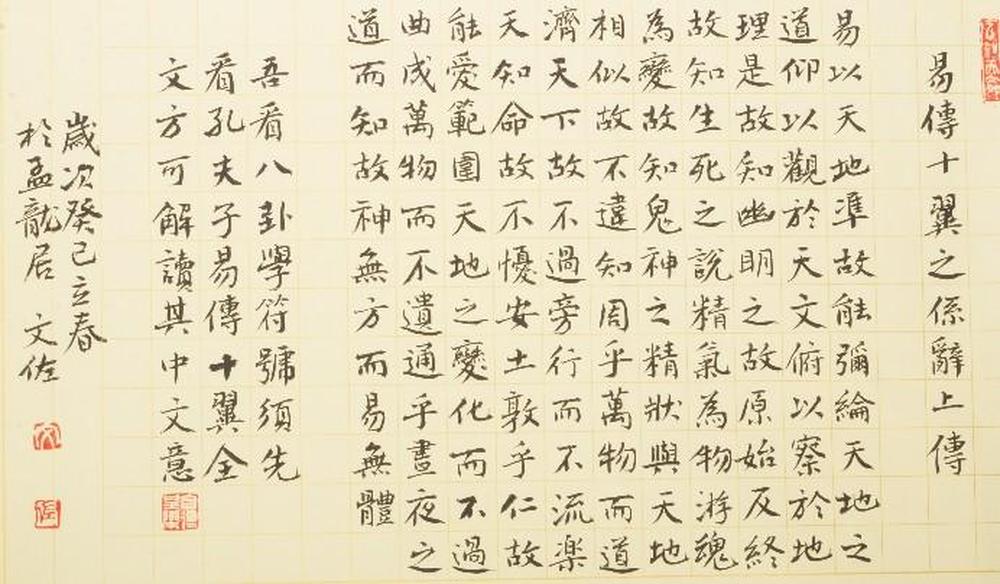 易傳十翼之係辭上傳
易以天地準故能彌綸天地之
道仰以觀於天文俯以察於地
理是故知幽明之故原始反終
故知生死之說精氣為物游魂
為變故知鬼神之精狀與天地
相似故不違知周乎萬物而道
濟天下故不過旁行而不流楽
天知命故不憂安土敦乎仁故
能愛範圍天地之變化而不過
曲成萬物而不遺通乎晝夜之
道而知故神無方而易無體
吾看八卦學符號須先
看孔夫子易傳十翼全
文方可解讀其中文意
歲次癸己立春
於孟龍居 文佐